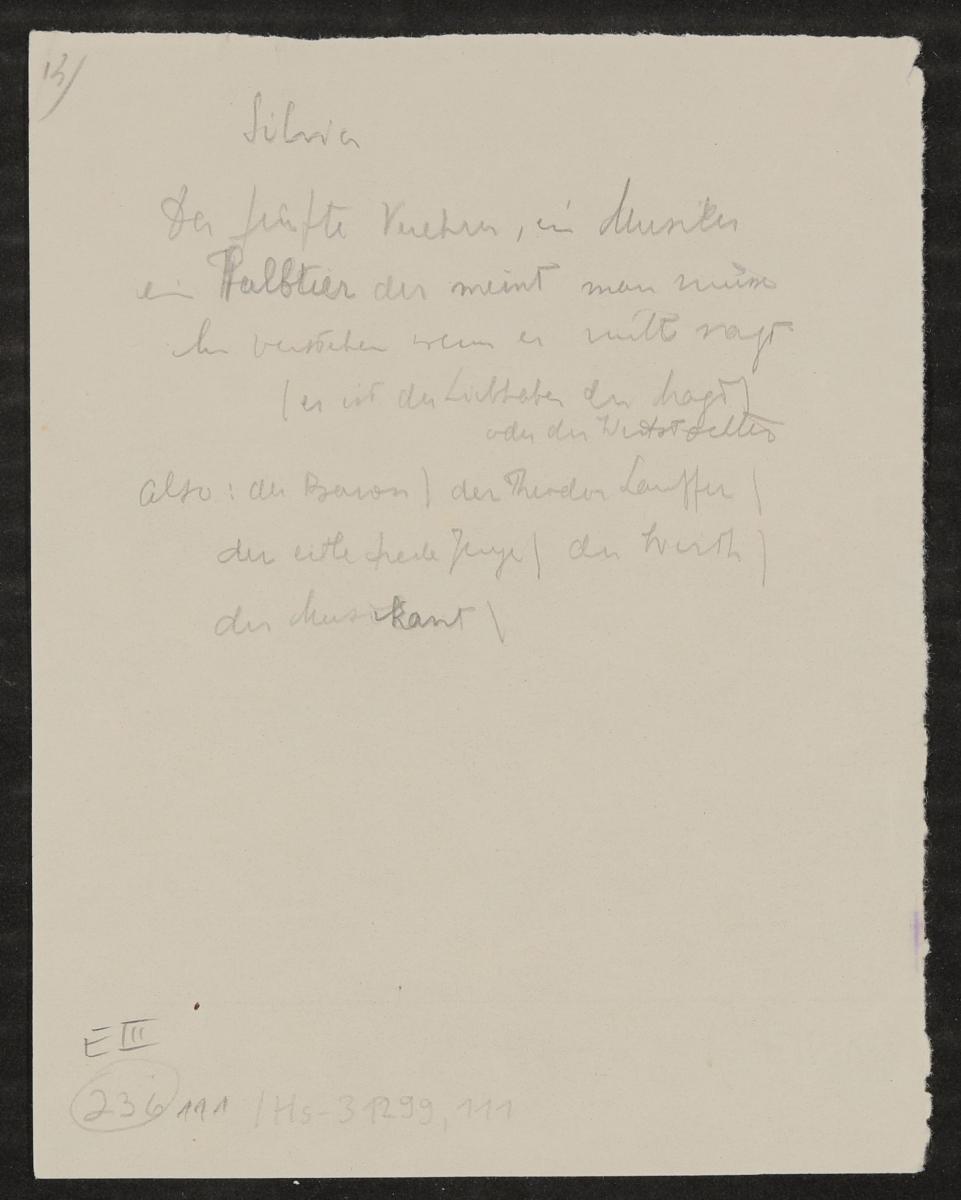 13)
Silvia
Der fünfte Verehrer, ein Musiker
ein Halbtier der meint man müsse
ihn verstehen wenn er nicht sagt
(er ist der Liebhaber der Magd)
oder der Wirtstochter
also: der Baron) der Theodor Lauffer)
der eitle freche Junge) der Wirth)
der Musikant)
E III
236 111 /Hs-31299,111